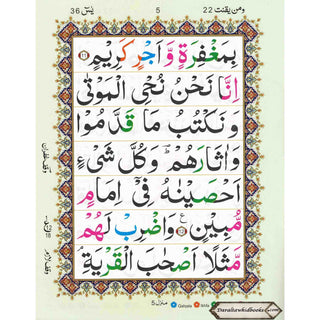 يٰسٓ 36 5 ومن يقنت 22
بِمَغْفِرَةٍ وَّاَجْرٍ كَرِيْمٍ ۝۱۱
اِنَّا نَحْنُ نُحْيِ الْمَوْتٰى
وَنَكْتُبُ مَا قَدَّمُوْا
وَاٰثَارَهُمْ ؕ وَكُلَّ شَيْءٍ
اَحْصَيْنٰهُ فِيْۤ اِمَامٍ
مُّبِيْنٍ ۝۱۲ ع وَاضْرِبْ لَهُمْ
مَّثَلًا اَصْحٰبَ الْقَرْيَةِ ۘ
منزل 5
Daraltawhidbooks.com